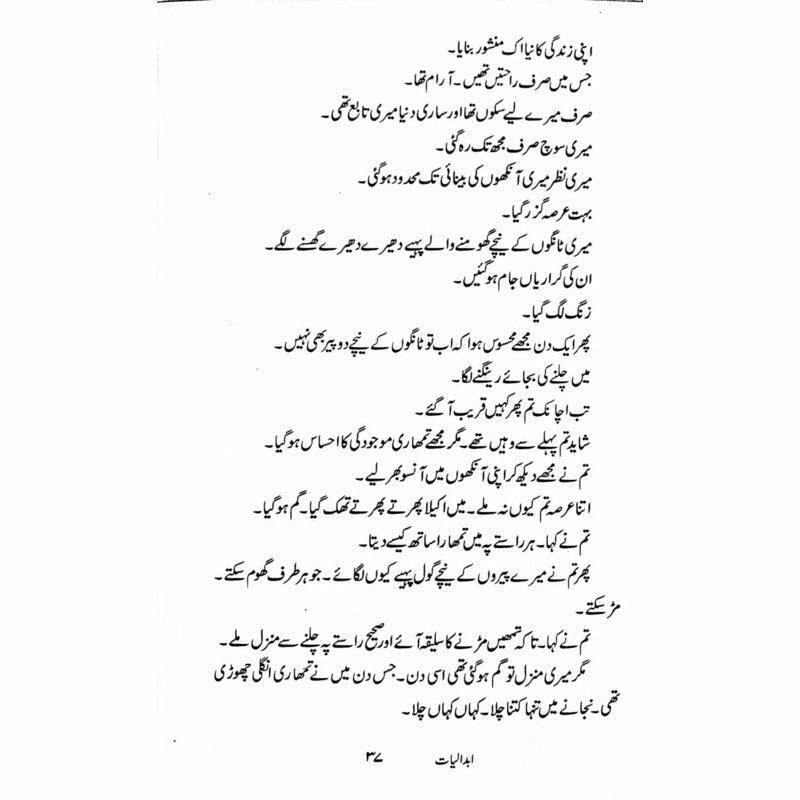 اپنی زندگی کا نیا اک منشور بنایا۔
جس میں صرف راحتیں تھیں۔ آرام تھا۔
صرف میرے لیے سکوں تھا اور ساری دنیا میری تابع تھی۔
میری سوچ صرف مجھ تک رہ گئی۔
میری نظر میری آنکھوں کی بینائی تک محدود ہو گئی۔
بہت عرصہ گزر گیا۔
میری ٹانگوں کے نیچے گھومنے والے پہیے دھیرے دھیرے گھسنے لگے۔
ان کی گراریاں جام ہو گئیں۔
زنگ لگ گیا۔
پھر ایک دن مجھے محسوس ہوا کہ اب تو ٹانگوں کے نیچے دو پیر بھی نہیں۔
میں چلنے کی بجائے رینگنے لگا۔
تب اچانک تم پھر کہیں قریب آ گئے۔
شاید تم پہلے سے وہیں تھے۔ مگر مجھے تمھاری موجودگی کا احساس ہو گیا۔
تم نے مجھے دیکھ کر اپنی آنکھوں میں آنسو بھر لیے۔
اتنا عرصہ تم کیوں نہ ملے۔ میں اکیلا پھرتے پھرتے تھک گیا۔ گم ہو گیا۔
تم نے کہا۔ ہر راستے پہ میں تمھارا ساتھ کیسے دیتا۔
پھر تم نے میرے پیروں کے نیچے گول پہیے کیوں لگائے۔ جو ہر طرف گھوم سکتے۔
مڑ سکتے۔
تم نے کہا۔ تاکہ تمھیں مڑنے کا سلیقہ آئے اور صحیح راستے پہ چلنے سے منزل ملے۔
مگر میری منزل تو گم ہو گئی تھی اسی دن۔ جس دن میں نے تمھاری انگلی چھوڑی
تھی۔ نجانے میں تنہا کتنا چلا۔ کہاں کہاں چلا۔
ابدالیات ۳۷